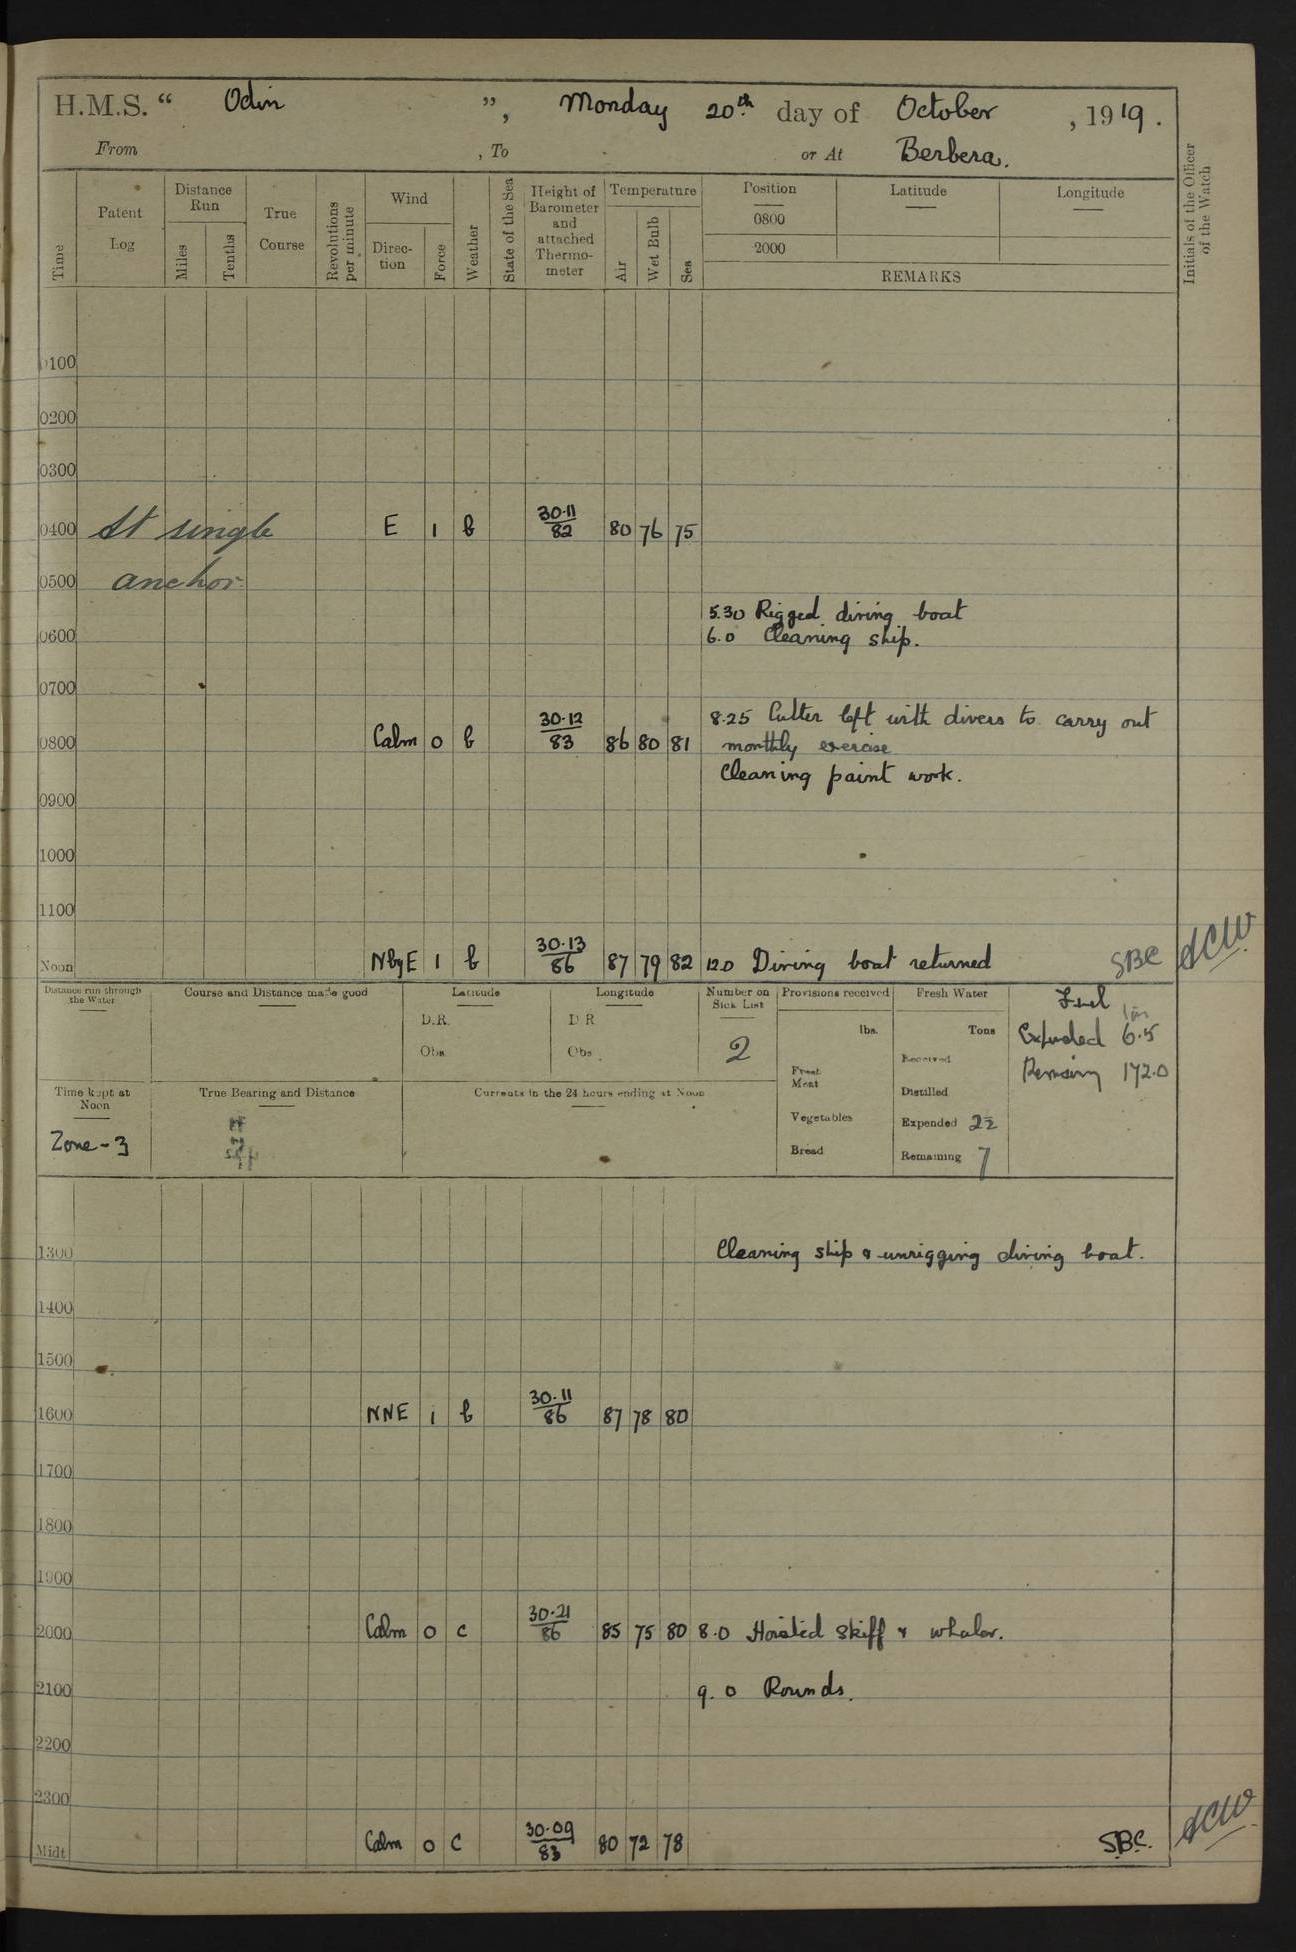 H.M.S. “ Odin ”, Monday 20th day of October, 1919.
From , To or At Berbera.
Time
Patent Log
Distance Run
Miles
Tenths
True Course
Revolutions per minute
Wind
Direc-tion
Force
Weather
State of the Sea
Height of Barometer and attached Thermo-meter
Temperature
Air
Wet Bulb
Sea
Position Latitude Longitude
0800
2000
REMARKS
Initials of the Officer of the Watch
0100
0200
0300
0400 At single E 1 b 30.11/82 80 76 75
0500 anchor.
5.30 Rigged diving boat
0600 6.0 Cleaning ship.
0700
8.25 Cutter left with divers to carry out
0800 Calm 0 b 30.12/83 86 80 81 monthly exercise
Cleaning paint work.
0900
1000
1100
Noon NbyE 1 b 30.13/86 87 79 82 12.0 Diving boat returned SBC ACW
Distance run through the Water
Course and Distance made good
Latitude
D.R.
Obs.
Longitude
D R
Obs.
Number on Sick List
2
Provisions received
lbs.
Fresh Meat
Vegetables
Bread
Fresh Water
Tons
Received
Distilled
Expended 2½
Remaining 7
Fuel
Expended 6.5
Remaining 172.0
Time kept at Noon
Zone -3
True Bearing and Distance
Currents in the 24 hours ending at Noon
1300 Cleaning ship & unrigging diving boat.
1400
1500
1600 NNE 1 b 30.11/86 87 78 80
1700
1800
1900
2000 Calm 0 c 30.21/86 85 75 80 8.0 Hoisted skiff & whaler.
2100 9.0 Rounds.
2200
2300
Midt. Calm 0 c 30.09/83 80 72 78 S.B.C. ACW